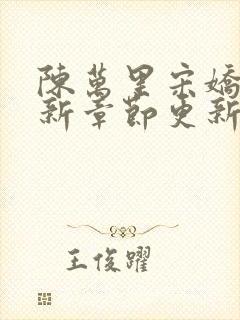 陳萬里宋嬌
新章節更新
王俊躍